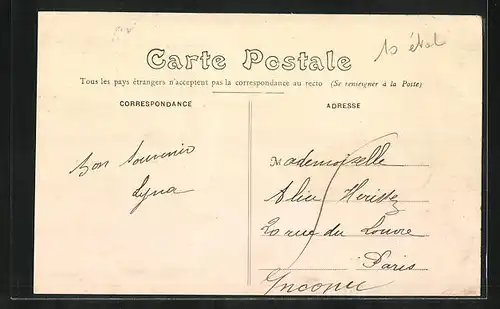 10 état
Carte Postale
Tous les pays étrangers n'acceptent pas la correspondance au recto (Se renseigner à la Poste)
CORRESPONDANCE
ADRESSE
Bon Souvenir
Lyna
Mademoiselle
Alice
20 rue du Louvre
Paris